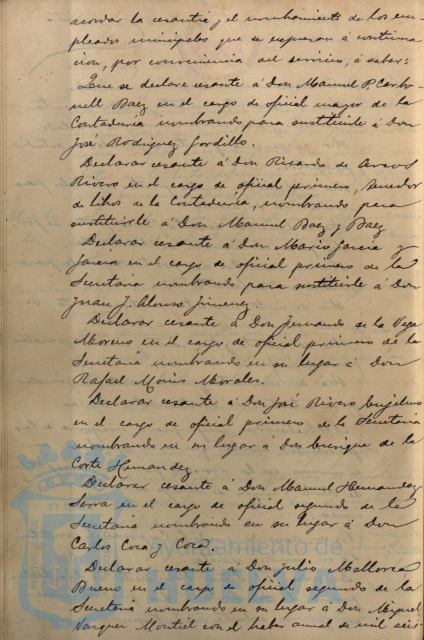 acordar la cesantia y el nombramiento de los em-
pleados municipales que se expresan á continua
cion, por conveniencia del servicio, á saber:
Que se declare cesante á Don Manuel P. Carbo-
nell Baez en el cargo de oficial mayor de la
Contaduria nombrando para sustituirle á Don
José Rodriguez Gordillo.
Declarar cesante á Don Ricardo de
Rivero en el cargo de oficial primero, Tenedor
de libros de la Contaduria, nombrando para
sustituirle á Don Manuel Baez y Baez
Declarar cesante á Don Mario Garcia y
Garcia en el cargo de oficial primero de la
Secretaria nombrando para sustituirle á Don
Juan J. Alonso Jimenez
Declarar cesante á Don Fernando de la Vega
Moreno en el cargo de oficial primero de la
Secretaria nombrando en su lugar á Don
Rafael Morales.
Declarar cesante á Don José Rivero
en el cargo de oficial primero de la Secretaria
nombrando en su lugar á Don Enrique de la
Corte Hernandez.
Declarar cesante á Don Manuel Hernandez
Serra en el cargo de oficial segundo de la
Secretaria nombrando en su lugar á Don
Carlos Coca y Coca.
Declarar cesante á Don Julio Mallorca
Bueno en el cargo de oficial segundo de la
Secretaria nombrando en su lugar á Don Miguel
Vazquez Montiel con el haber anual de mil seis-
Ayuntamiento de
HUELVA